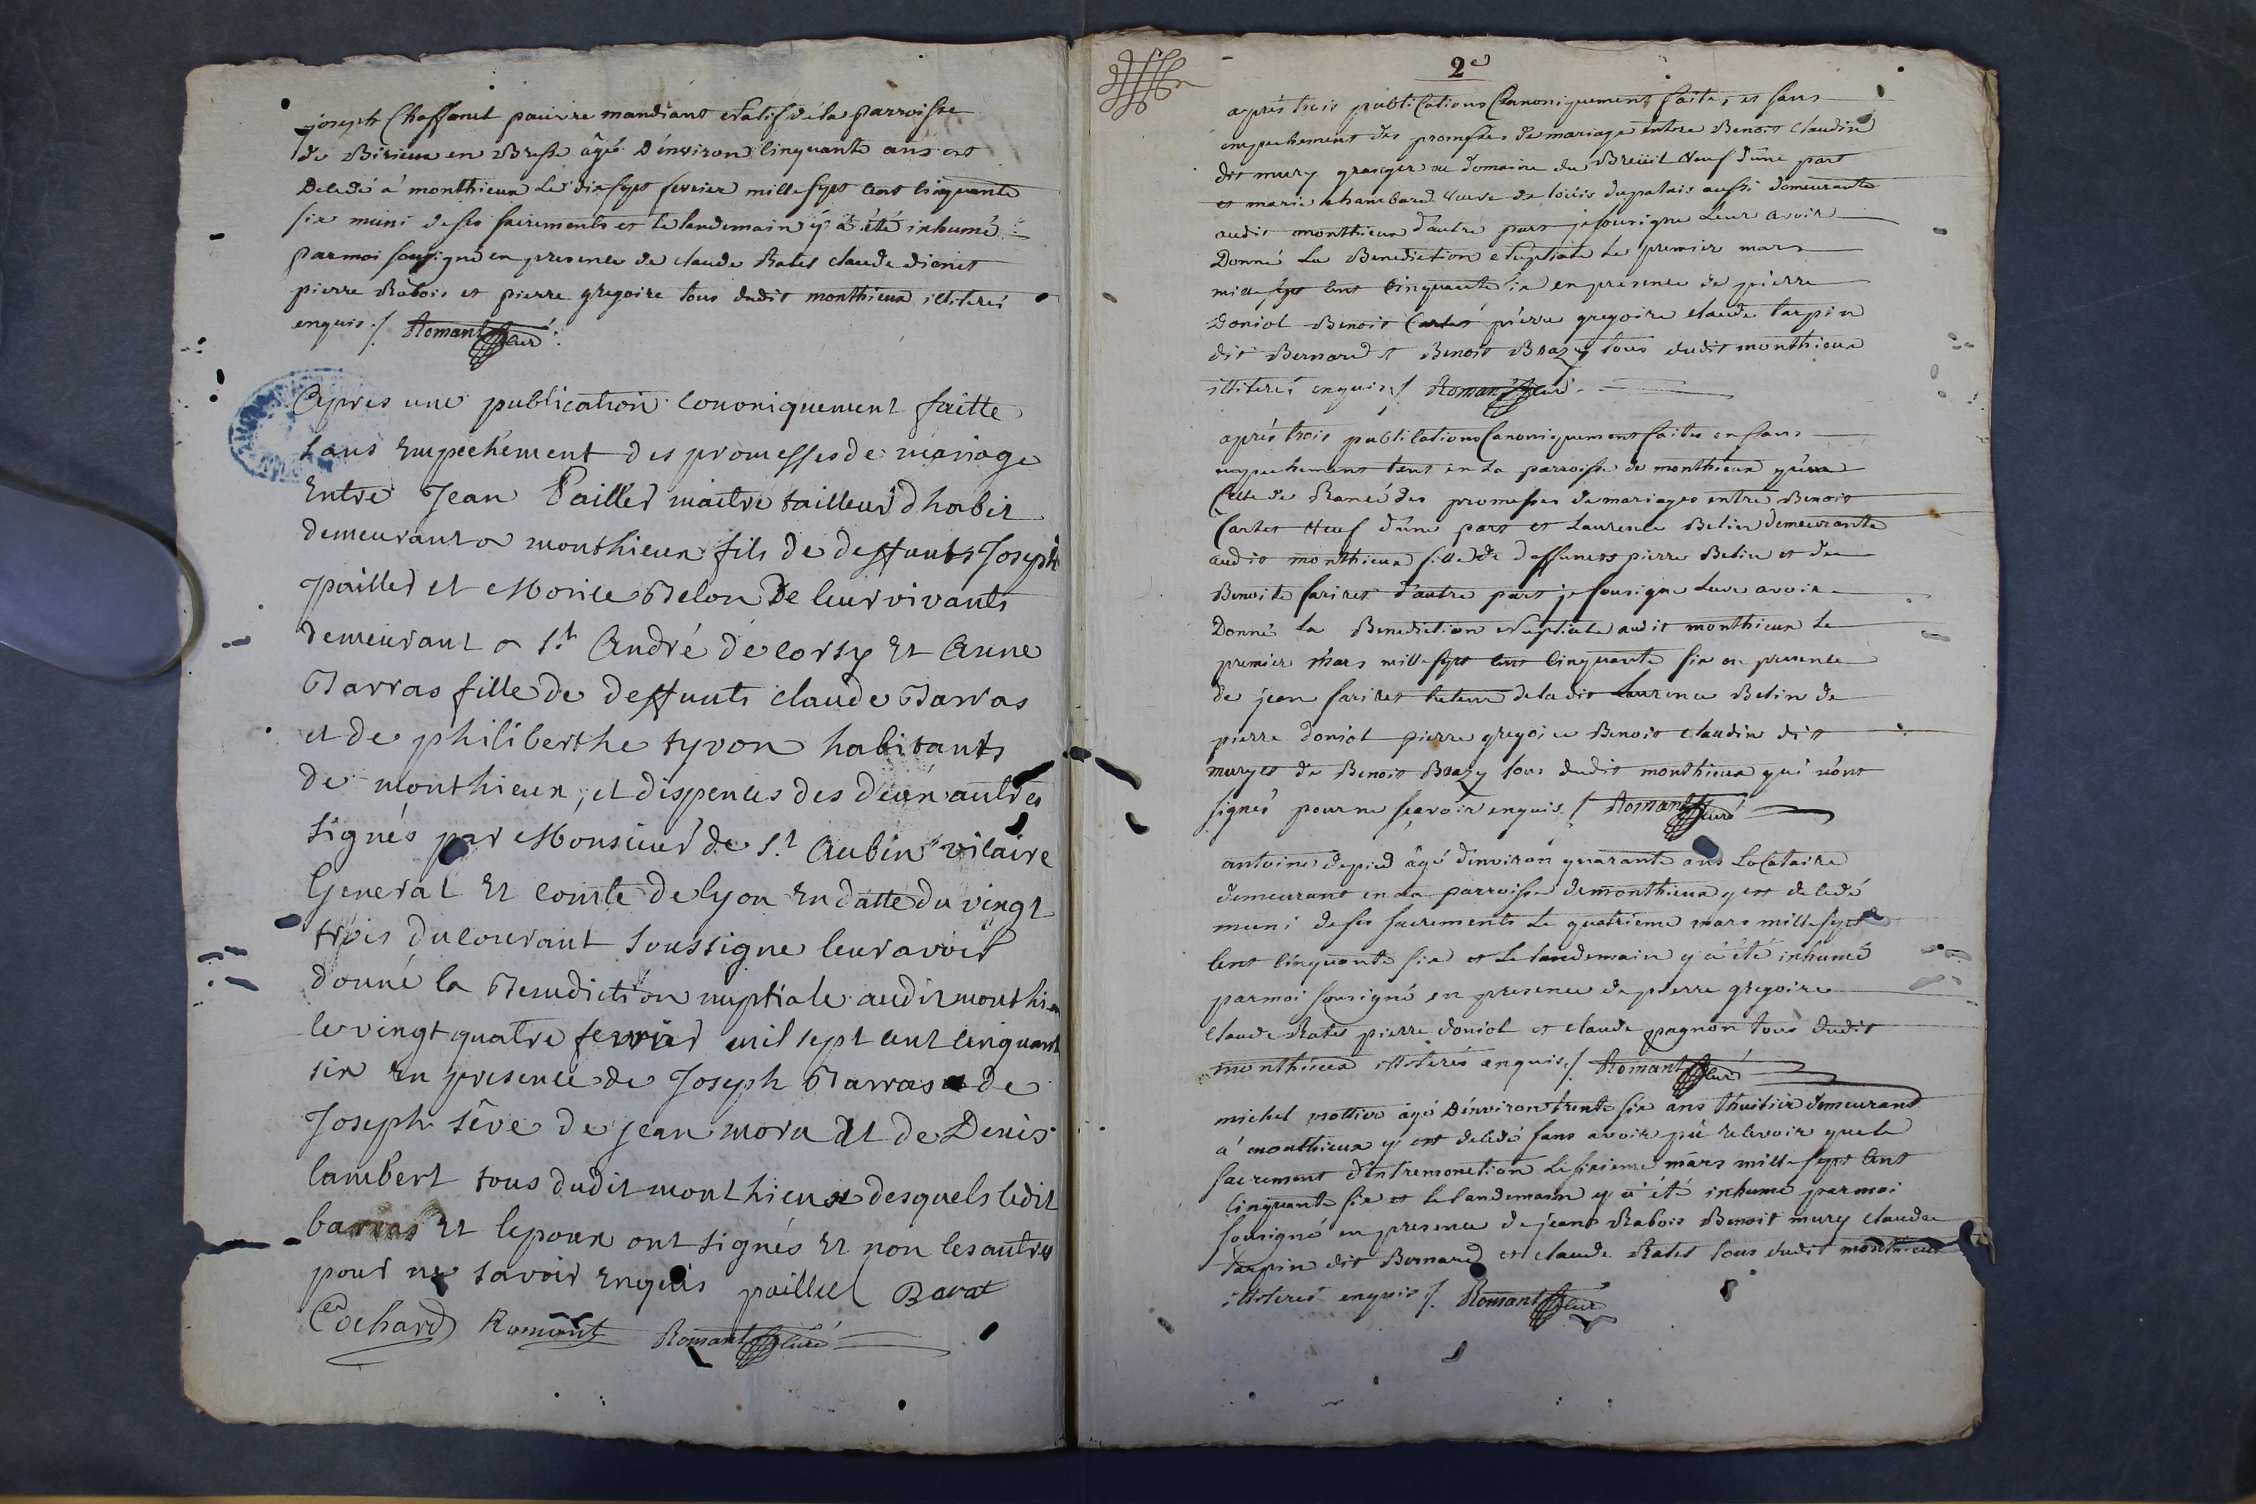 joseph Chaffanel pauvre mandiant natif de la parroisse
de Birieux en Bresse âgé d'environ cinquante ans est
decedé a monthieux le dix sept fevrier mille sept cent cinquante
six muni de ses sacrements et le landemain y a été inhumé
par moi sousigné en presence de claude Rater claude dionet
pierre Rabois et pierre gregoire tous dudit monthieux illiterés
enquis ./. Romant Curé
Apres une publication cononiquement faitte
sans empechement des promesses de mariage
entre Jean Pailler maitre tailleur d habit
demeurant a monthieux fils de deffunts Joseph
pailler et Marie Belon de leur vivants
demeurant a St André de corsy et Anne
Barras fille de deffunts claude Barras
et de philiberthe tyvon habitants
de monthieux, et dispences des deux autres
signés par Monsieur de St Aubin vicaire
General et comte de lyon en datte du vingt
trois du courant soussigne leur avoir
donné la Benediction nuptiale audit monthieux
le vingt quatre fevrier mil sept cent cinquant
six en presence de Joseph Barras de
Joseph sêve de jean moru et de Denis
lambert tous dudit monthieux desquels ledit
barras et lepoux ont signés et non les autres
pour ne savoir enquis pailler Barat
Cochard Romant Romant Curé
2e
après trois publications Canoniquement faites et sans
empechement des promesses de mariage entre Benoit claudin
dit mury granger au domaine du Breüil veuf d'une part
et marie chambard veuve de loüis dupalais aussi demeurante
audit monthieux d'autre part je sousigne leur avoir
donné la Benediction nuptiale le premier mars
mille sept cent cinquante six en presence de pierre
doniol Benoit Cartet pierre gregoire claude tarpin
dit Bernard et Benoit Brazy tous dudit monthieux
illiterés enquis ./. Romant Curé
après trois publications Canoniquement faites en sans
empechement tant en la parroisse de monthieux qu'en
Celle de Rancé des promesses de mariages entre Benoit
Cartet veuf d'une part et Laurence Belin demeurante
audit monthieux fille de deffunets pierre Belin et de
Benoite farires d'autre part je sousigne leur avoir
donné la Benediction nuptiale audit monthieux le
premier mars mille sept cent cinquante six en presence
de jean farires tuteur de la dit Laurence Belin de
pierre doniol pierre gregoire Benoit claudin dit
mury et de Benoit Brazy tous dudit monthieux qui n'ont
signés pour ne sçavoir enquis ./. Romant Curé
antoine depied âgé d'environ quarante ans Locataire
demeurant en la parroisse de monthieux y est decedé
muni de ses sacrements le quatrieme mars mille sept
cent cinquante six et le landemain y a été inhumé
par moi sousigné en presence de pierre gregoire
claude Rater pierre doniol et claude pagnon tous dudit
monthieux illiterés enquis ./. Romant Curé
michel mottier âgé d'environ trente six ans thuilier demeurand
à monthieux y est decedé sans avoir pû recevoir que le
sacrement d'extremonction le sixieme mars mille sept cent
cinquante six et le landemain y a été inhumé par moi
sousigné en presence de jean Rabois Benoit mury claude
tarpin dit Bernard et claude Rater tous dudit monthieux
illiterés enquis ./. Romant Curé